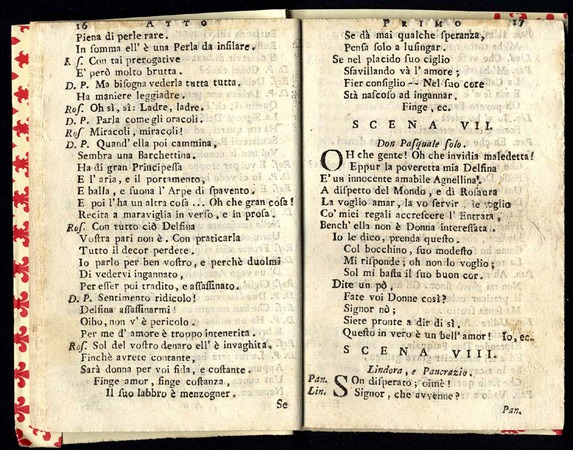 16 ATTO
Piena di perle rare.
In somma ell' è una Perla da infilare.
R. ſ. Con tai prerogative
E' però molto brutta.
D. P. Ma biſogna vederla tutta tutta.
Ha maniere leggiadre.
Roſ. Oh sì, sì: Ladre, ladre.
D. P. Parla come gli oracoli.
Roſ Miracoli, miracoli!
D. P. Quand' ella poi cammina,
Sembra una Barchettina.
Ha di gran Principeſſa
E l' aria, e il portamento,
E balla, e ſuona l' Arpe di ſpavento.
E poi l' ha un altra coſa... Oh che gran coſa!
Recita a maraviglia in verſo, e in proſa.
Roſ. Con tutto ciò Delfina
Voſtra pari non è. Con praticarla
Tutto il decor perdete.
Io parlo per ben voſtro, e perchè duolmi
Di vedervi ingannato,
Per eſſer poi tradito, e aſſaſſinato.
D. P. Sentimento ridicolo!
Delfina aſſaſſinarmi!
Oibo, non v' è pericolo.
Per me d' amore è troppo incenerita.
Roſ. Sol del voſtro denaro ell' è invaghita.
Finchè avrete contante,
Sarà donna per voi fida, e coſtante.
Finge amor, finge coſtanza,
Il ſuo labbro è menzogner.
Se
PRIMO 17
Se dà mai qualche ſperanza,
Penſa ſolo a luſingar.
Se nel placido ſuo ciglio
Sfavillando và l' amore;
Fier conſiglio -- Nel ſuo core
Stà naſcoſo ad ingannar.
Finge, ec.
SCENA VII.
Don Paſquale ſolo.
OH che gente! Oh che invidia maledetta!
Eppur la poveretta mia Delfina
E' un innocente amabile Agnellina.
A diſpetto del Mondo, e di Roſaura
La voglio amar, la vo ſervir, le voglio
Co' miei regali accreſcere l' Entrata,
Bench' ella non è Donna intereſſata.
Io le dico, prenda queſto.
Col bocchino, ſuo modeſto
Mi riſponde; oh non lo voglio;
Sol mi baſta il ſuo buon cor.
Dite un pò,
Fate voi Donne così?
Signor nò;
Siete pronte a dir di sì.
Queſto in vero è un bell' amor! Io, ec.
SCENA VIII.
Lindora, e Pancrazio.
Pan. SOn diſperato; oimè!
Lin. Signor, che avvenne?
Pan.